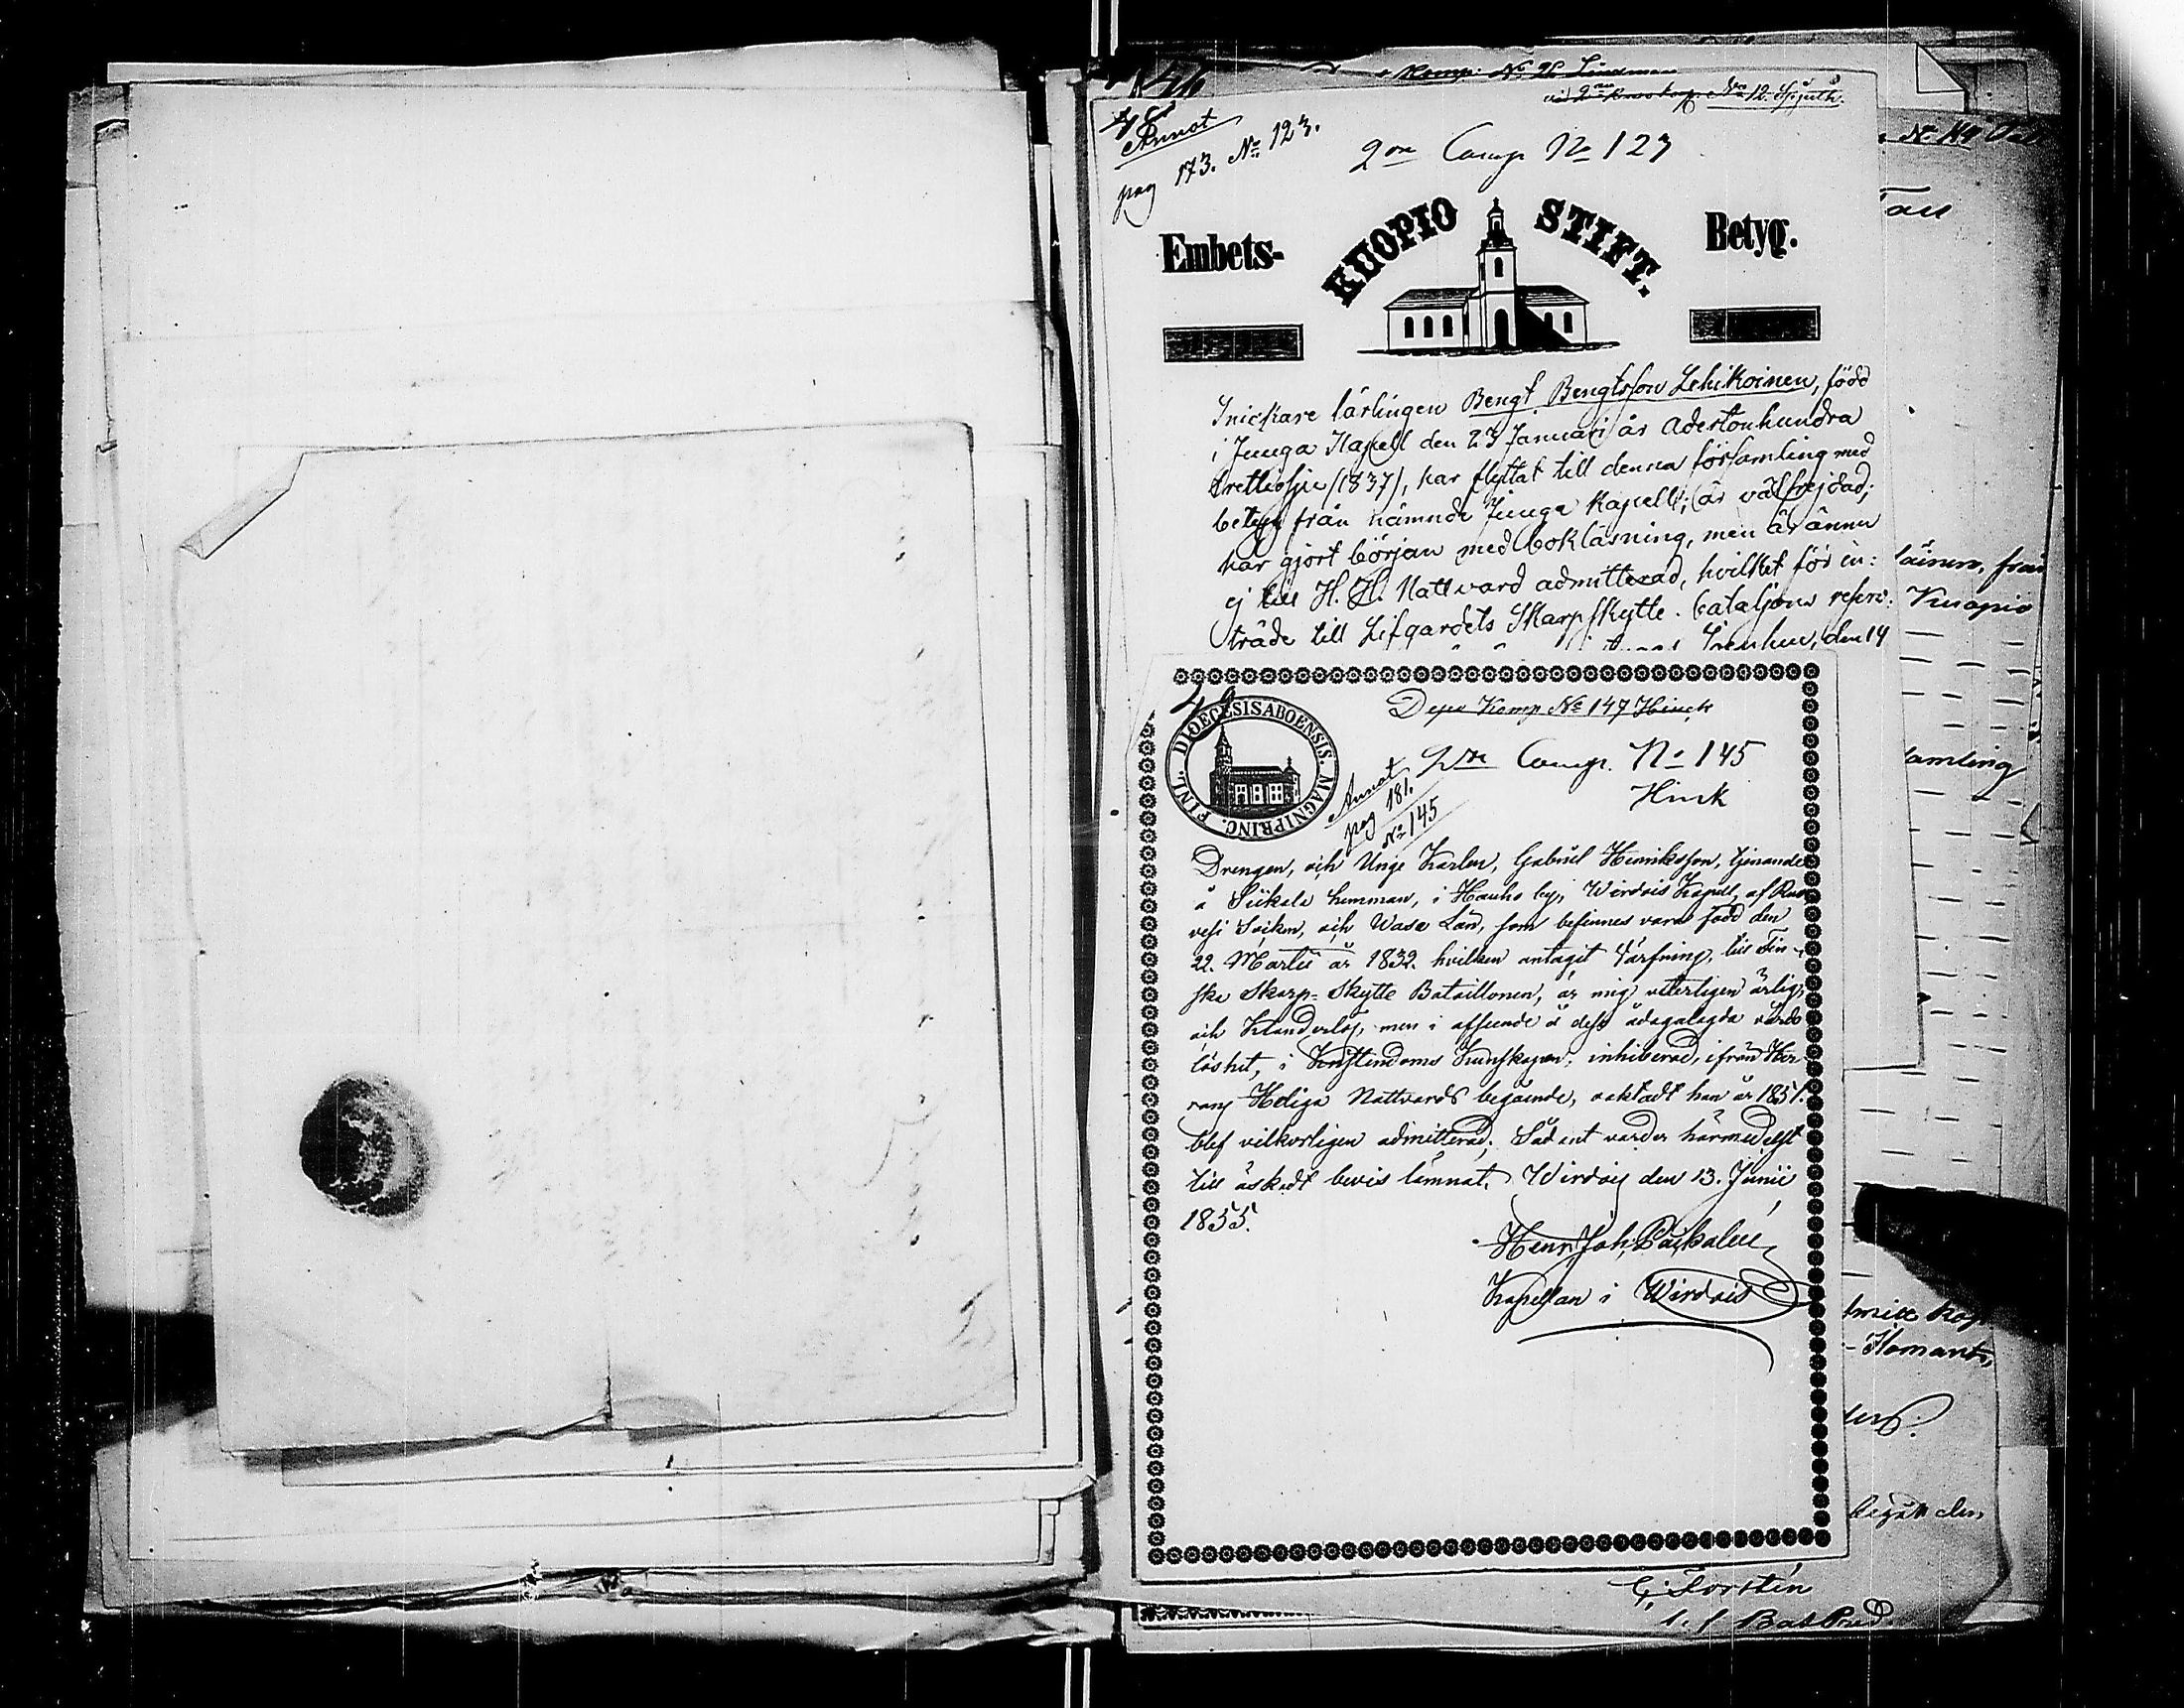 Komp: No 26 Lindman
No 12. Spjuth.
48
Annot
pag 173. No 123.
2ra Comp No 123
Embets-
KUOPIO STIFT.
Betyg.
Snickare lärlingen Bengt Bengtsson Lehikoinen, född
i Juuga Kapell den 23 Januari år Adertonhundra
trettiosju (1837), har flyttat till denna församling med
betyg från nämnde Juuga Kapell; är välfrejdad;
har gjort början med bokläsning, men är ännu
ej till H. H. Nattvard admitterad, hvilket för in:
träde till Lifgardets Skarpskytte-bataljons reserv:
den 14
49
DIOECESIS ABOENSIS. MAGNI PRINC. FINL.
Depo Komp No 147 Hinck
2ra Comp. No 145
Hink
Annot
pag 181.
No 145
Drengen, och Unge Karlen, Gabriel Henriksson, tjenande
å Siikala hemman, i Hauho by, Wirdois Kapell, af Ruo-
vesi Socken, och Wasa Län, som befinnes vara född den
22. Martii år 1832. hvilken antagit Värfning, till Fin-
ska Skarp-Skytte Bataillonen, är mig veterligen ärlig,
och Klanderlös, men i afseende å dess ådagalagda vårds
löshet, i Kristendoms Kunskapen, inhiberad, ifrån Her-
rans Heliga Nattvards begående, oaktadt han år 1851.
blef vilkorligen admitterad; Sådant varder härmedelst
till äskadt bevis lämnat. Wirdois den 13. Junii
1855.
Henr. Joh. Päikalen
Kapellan i Wirdois
Tall
från
Kuopio
amling
Ilomants,
begått den
C. Forstén